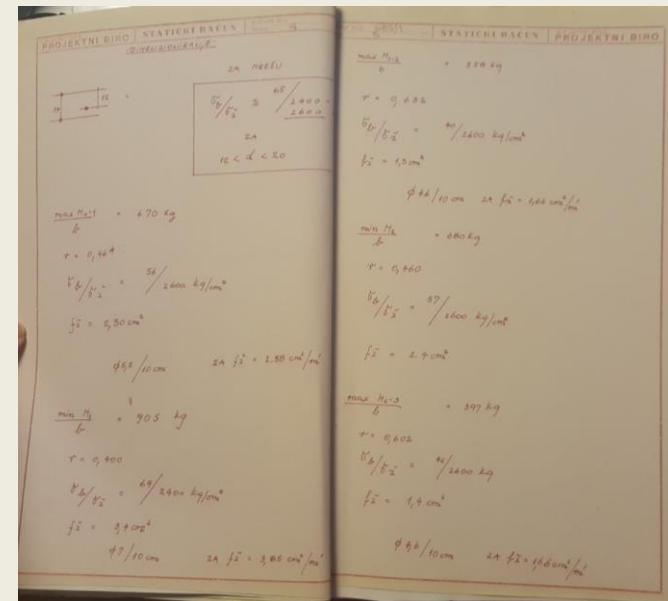 PROJEKTNI BIRO STATIČKI RAČUN 4
DIMENZIONIRANJE
ZA MREŽU
σb/σž = 65/2400 -
2600
ZA
12 < d < 20
max M0-1 / b = 670 kg
r = 0,464
σb/σž = 56/2600 kg/cm²
fž = 2,30 cm²
ZA fž = 2.38 cm²/m'
min M1 / b = 905 kg
r = 0,400
σb/σž = 64/2400 kg/cm²
fž = 3,4 cm²
φ7/10 cm ZA fž = 3,85 cm²/m'
5 STATIČKI RAČUN PROJEKTNI BIRO
max M1-2 / b = 358 kg
r = 0,632
σb/σž = 40/2600 kg/cm²
fž = 1,3 cm²
φ4,6/10 cm ZA fž = 1,66 cm²/m'
min M2 / b = 680 kg
r = 0,460
σb/σž = 57/2600 kg/cm²
fž = 2.4 cm²
max M2-3 / b = 397 kg
r = 0,602
σb/σž = 42/2600 kg
fž = 1,4 cm²
φ4,6/10 cm ZA fž = 1,66 cm²/m'